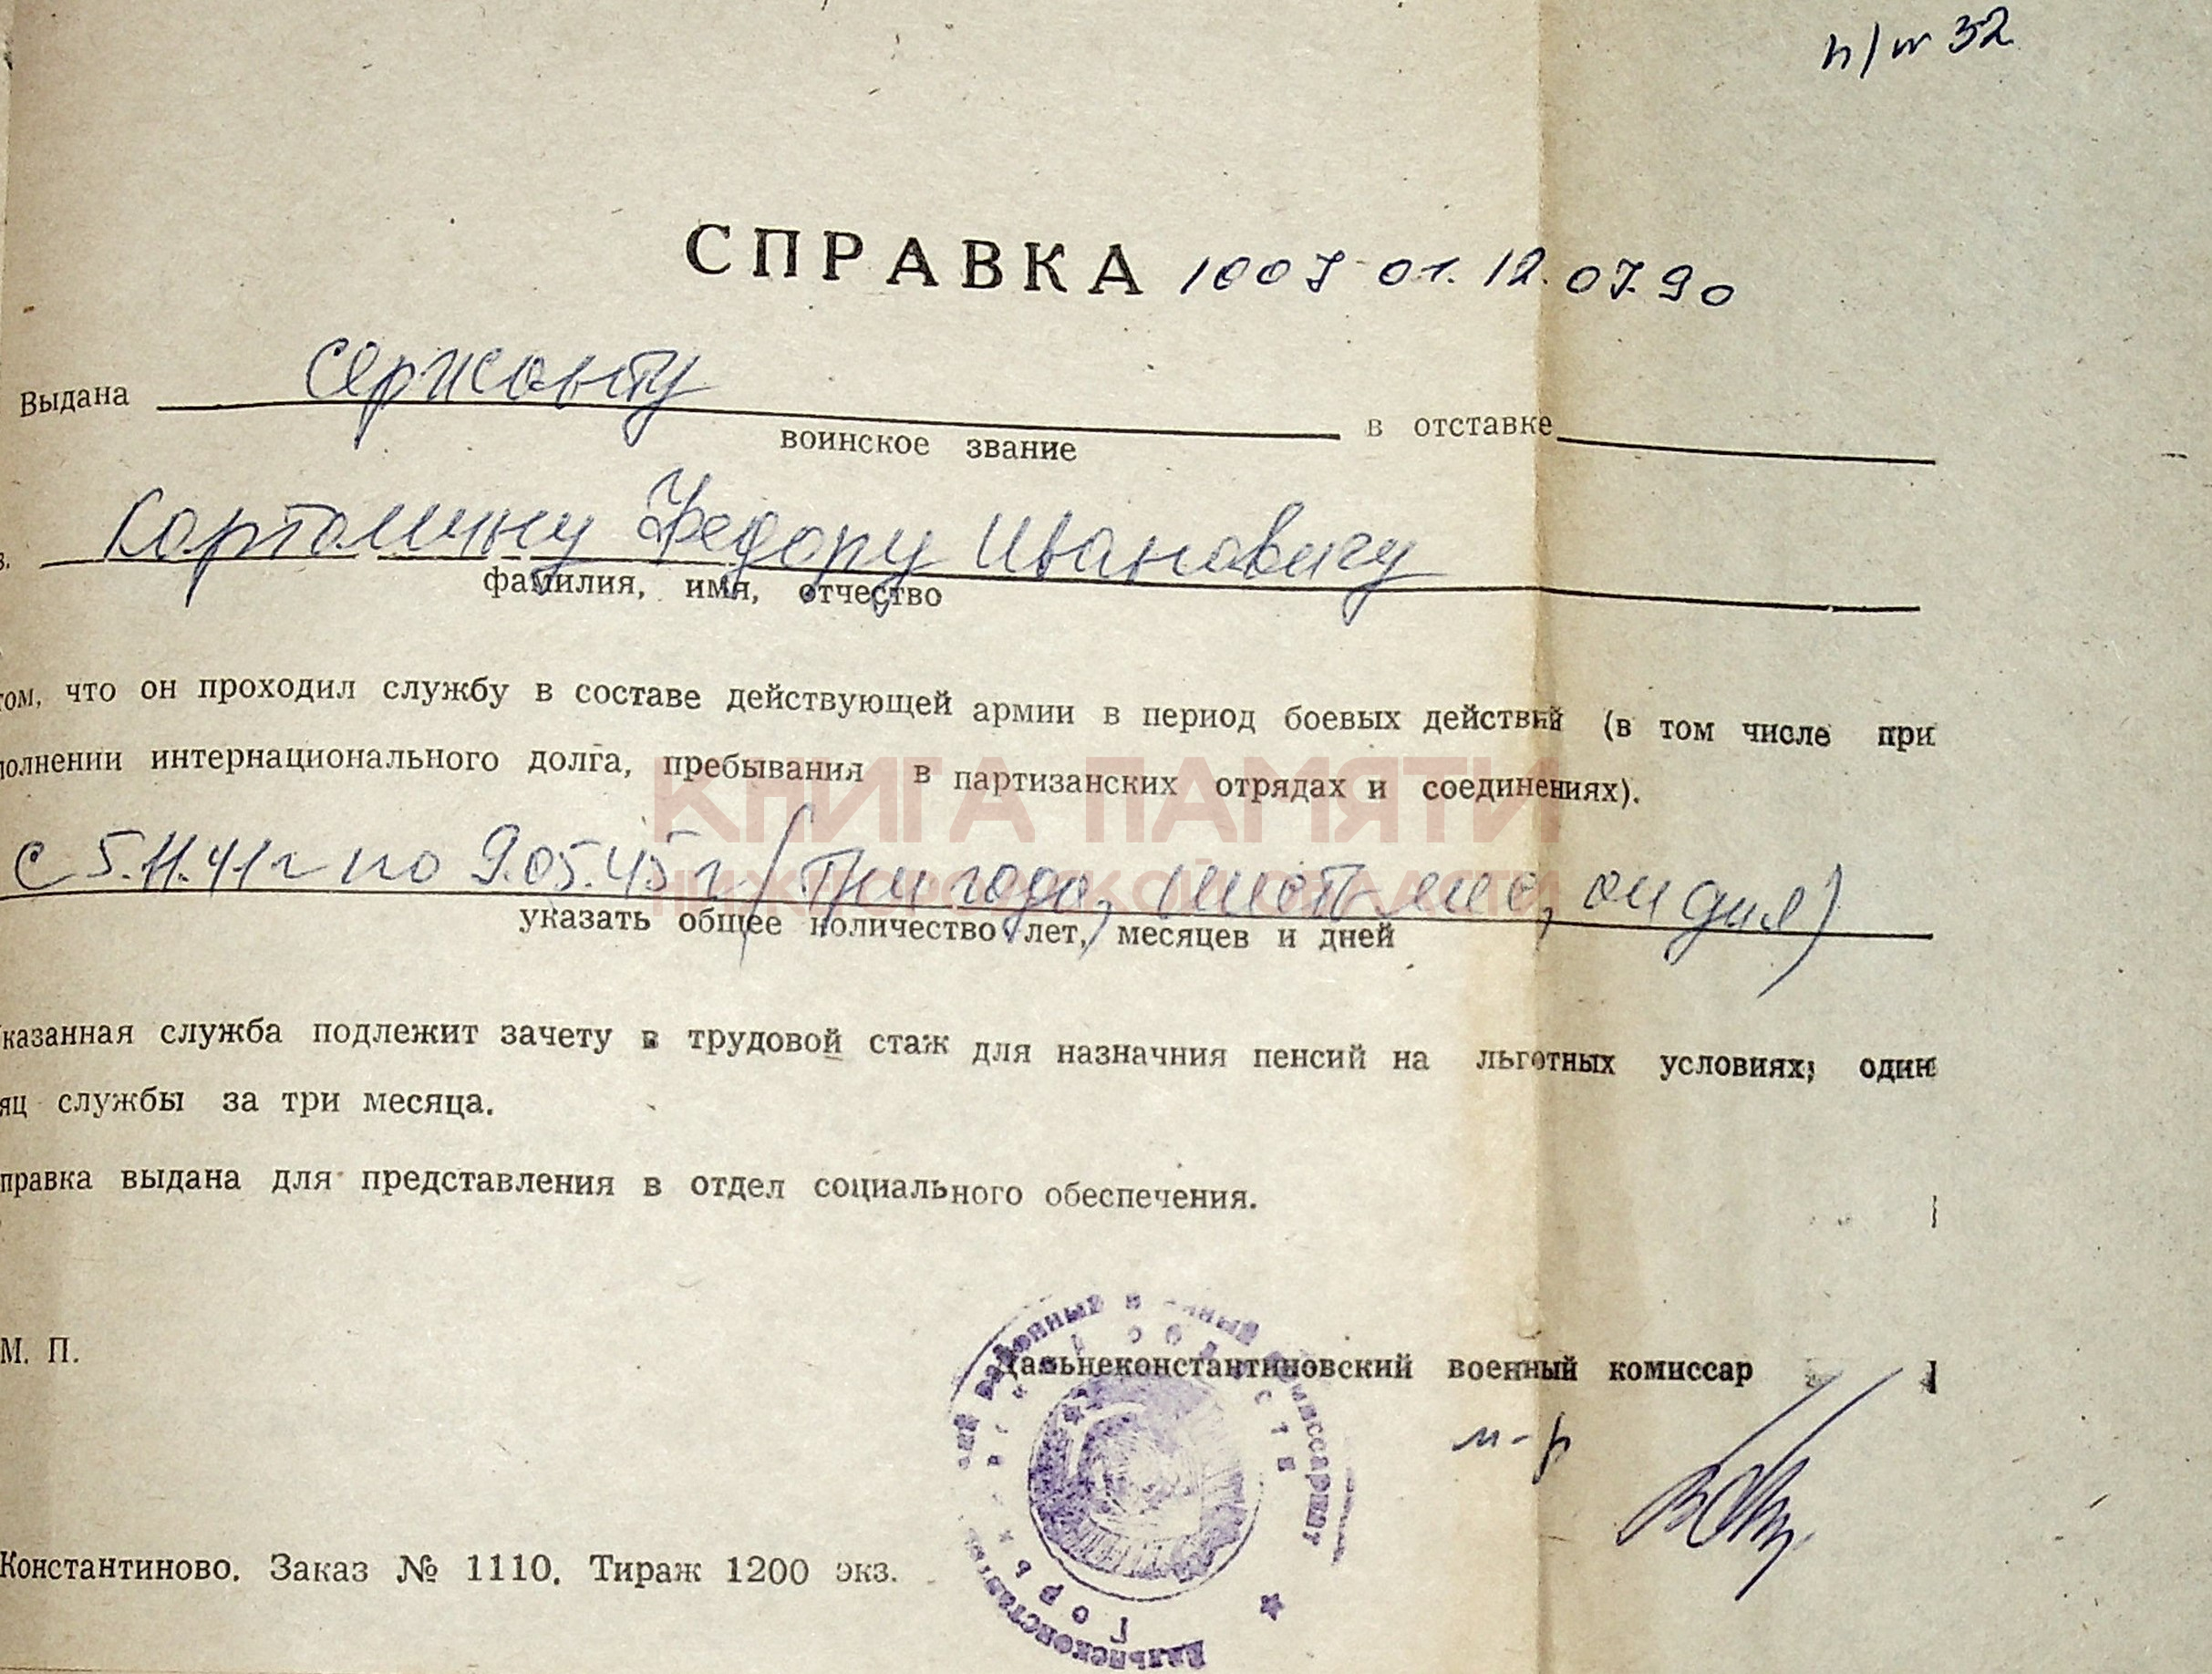 СПРАВКА 1007 от. 12.07.90
Выдана сержанту в отставке
воинское звание
Картомину Федору Ивановичу
фамилия, имя, отчество
том, что он проходил службу в составе действующей армии в период боевых действий (в том числе при
полнении интернационального долга, пребывания в партизанских отрядах и соединениях).
КНИГА ПАМЯТИ
НИЖЕГОРОДСКОЙ ОБЛАСТИ
с 5.11.41г по 9.05.45г (три года, шесть мес, дня)
указать общее количество лет, месяцев и дней
Указанная служба подлежит зачету в трудовой стаж для назначния пенсий на льготных условиях; один
яц службы за три месяца.
правка выдана для представления в отдел социального обеспечения.
М. П.
Дальнеконстантиновский военный комиссар
м-р
Константиново. Заказ № 1110. Тираж 1200 экз.